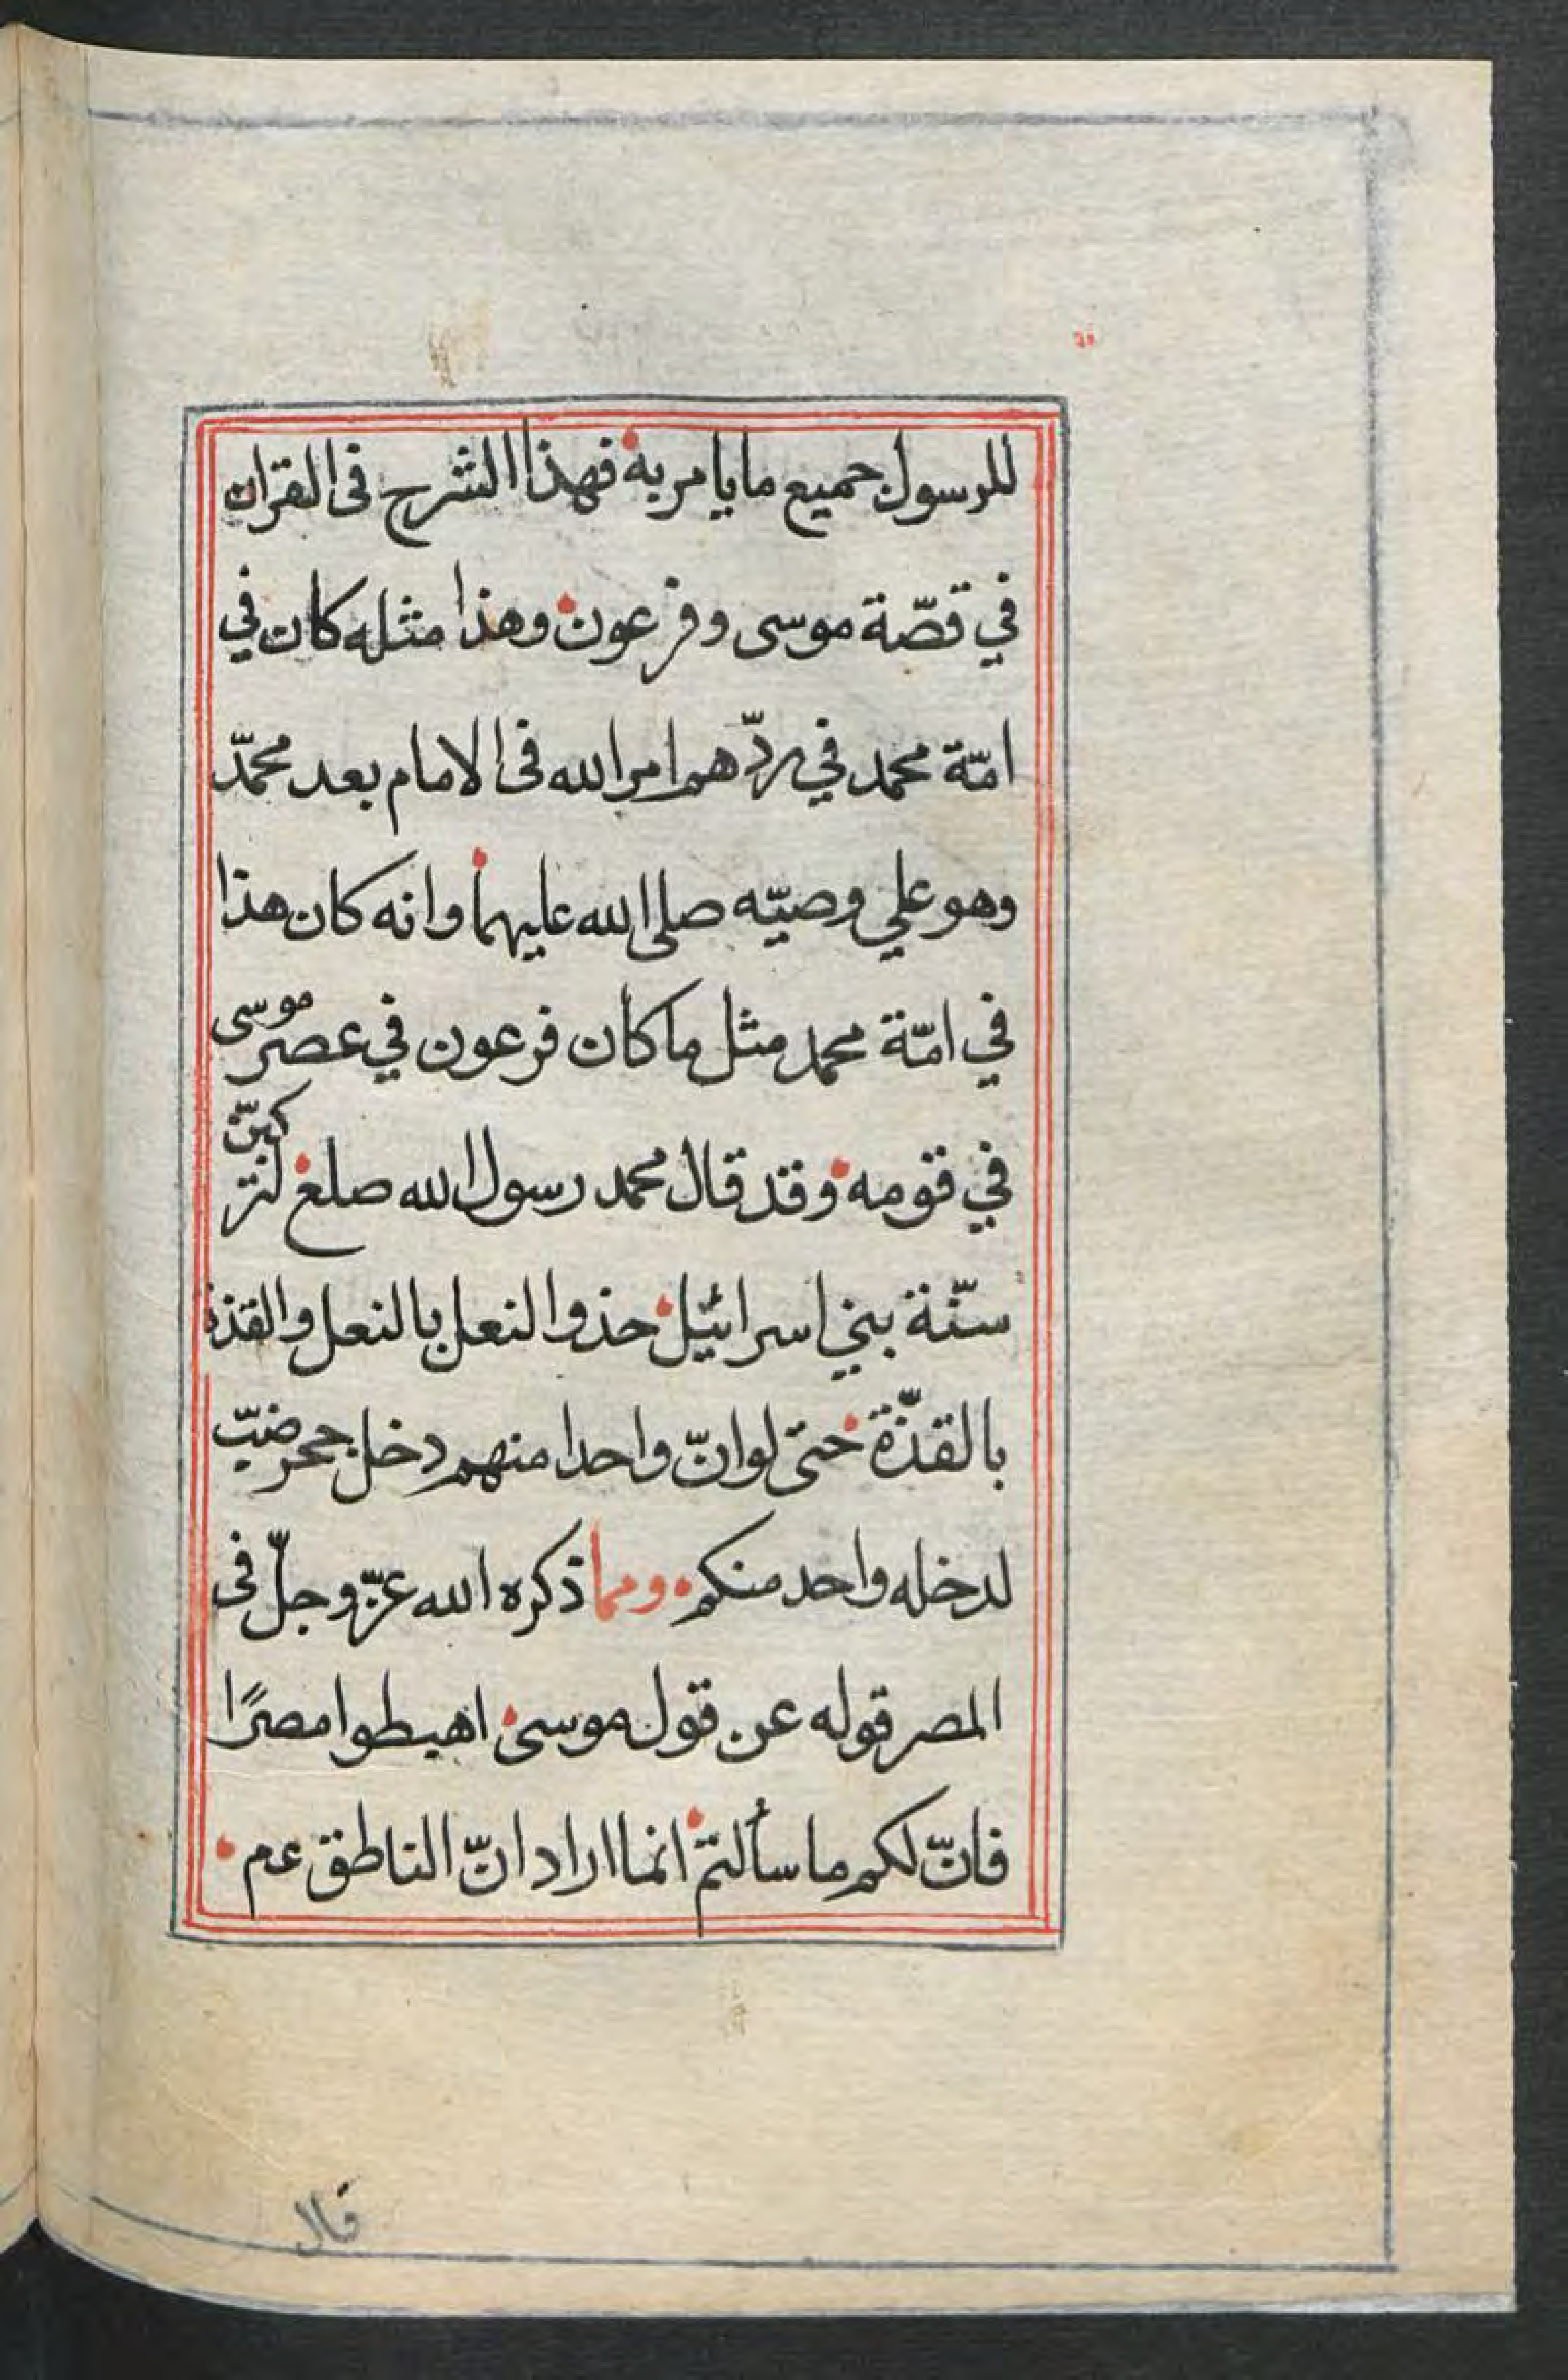 للرسول جميع ما يامر به فهذا الشرح فى القران
في قصّة موسى وفرعون وهذا مثله كان في
امّة محمد في ردّهم امر الله فى الامام بعد محمّد
وهو علي وصيّه صلى الله عليهما وانه كان هذا
في امّة محمد مثل ما كان فرعون في عصر موسى
في قومه وقد قال محمد رسول الله صلع لتركبنّ
سنّة بني اسرائيل حذو النعل بالنعل والقذة
بالقذّة حتى لو انّ واحدا منهم دخل جحر ضبّ
لدخله واحد منكم ومما ذكره الله عزّ وجلّ فى
المصر قوله عن قول موسى اهبطوا مصرًا
فانّ لكم ما سألتم انما اراد انّ الناطق عم
قال